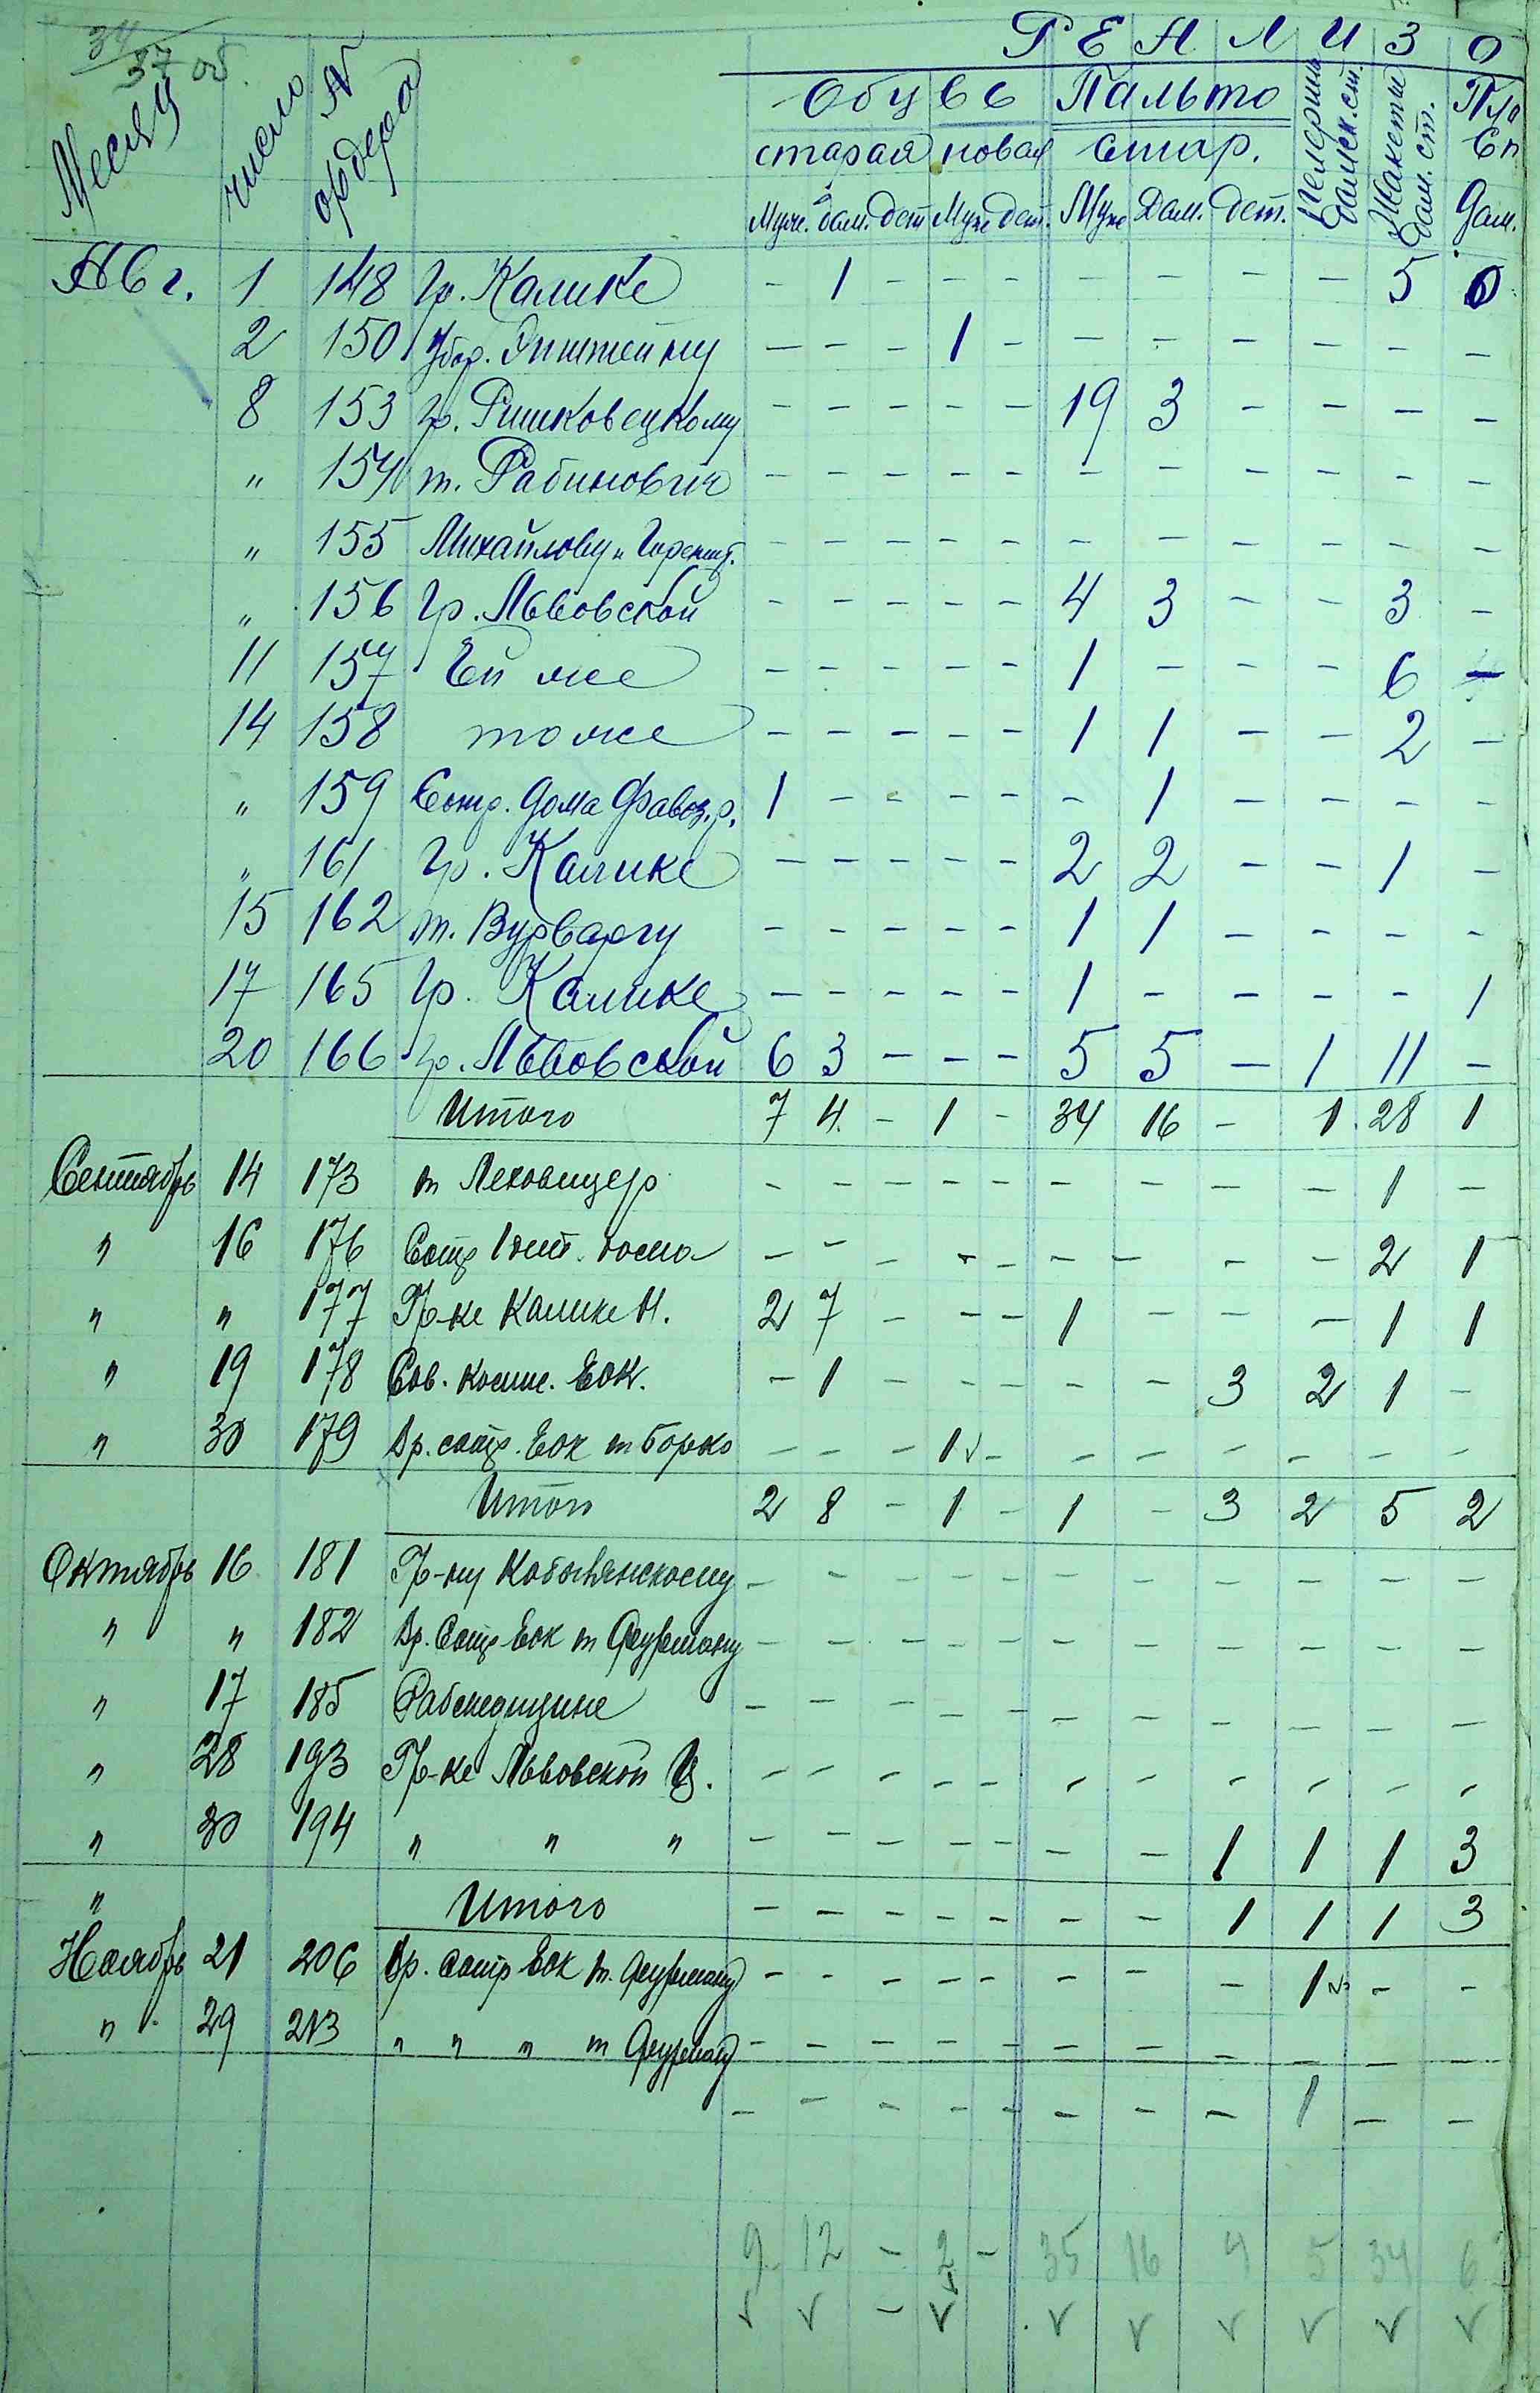 34
37 об.
Р Е А Л И З О
Месяц число № ордера Обувь Пальто Пелерины дамск. ст. Жакеты дам. ст. Пла
старая новая стар. Сп
Муж. дам. дет Муж дет. Муж Дам. дет. дам.
Авг. 1 148 Гр. Калике - 1 - - - - - - - 5 0
2 150 Убор. Эпштейну - - - 1 - - - - - - -
8 153 гр. Ришковецкому - - - - - 19 3 - - - -
" 154 т. Рабинович - - - - - - - - - - -
" 155 Михайлову и - - - - - - - - - - -
" 156 Гр. Львовской - - - - - 4 3 - - 3 -
11 157 Ей же - - - - - 1 - - - 6 -
14 158 тоже - - - - - 1 1 - - 2 -
" 159 Сотр. Дома 1 - - - - - 1 - - - -
" 161 Гр. Калике - - - - - 2 2 - - 1 -
15 162 т. Вурваргу - - - - - 1 1 - - - -
17 165 Гр. Калике - - - - - 1 - - - - 1
20 166 гр. Львовской 6 3 - - - 5 5 - 1 11 -
Итого 7 4 - 1 - 34 16 - 1 28 1
Сентябрь 14 173 т Леховицер - - - - - - - - - 1 -
" 16 176 Сотр дома - - - - - - - - - 2 1
" " 177 Гр-ке Калике И. 2 7 - - - 1 - - - 1 1
" 19 178 Сов. комис. ЕОК. - 1 - - - - - 3 2 1 -
" 30 179 Вр. сотр. ЕОК т Борко - - - 1 - - - - - - -
Итого 2 8 - 1 - 1 - 3 2 5 2
Октябрь 16 181 Гр-ну - - - - - - - - - - -
" " 182 Вр. Сотр ЕОК т Фурману - - - - - - - - - - -
" 17 185 - - - - - - - - - - -
" 28 193 Гр-ке Львовской Ц. - - - - - - - - - - -
" 30 194 " " " - - - - - - - 1 1 1 3
" Итого - - - - - - - 1 1 1 3
Ноябрь 21 206 Вр. сотр ЕОК т. Фурману - - - - - - - - 1 - -
" 29 213 " " " т Фурману - - - - - - - - - - -
- - - - - - - - 1 - -
9 12 - 2 - 35 16 4 5 34 6